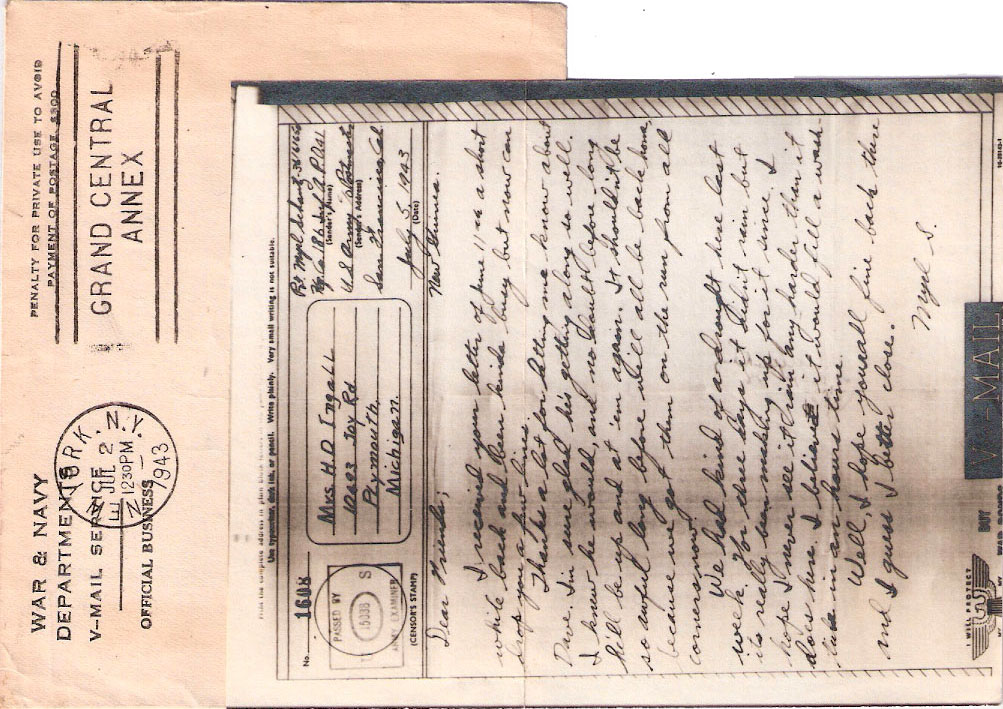 WAR & NAVY
DEPARTMENTS
V-MAIL SERVICE
OFFICIAL BUSINESS
PENALTY FOR PRIVATE USE TO AVOID
PAYMENT OF POSTAGE, $300
YORK, N.Y.
JUL 2
1230PM
1943
GRAND CENTRAL
ANNEX
Print the complete address in plain block letters
Use typewriter, dark ink, or pencil. Write plainly. Very small writing is not suitable.
No. 1608
PASSED BY
15038 S
ARMY EXAMINER
(CENSOR'S STAMP)
Mrs. H D Ingall
Joy Rd
Plymouth,
Michigan.
Pvt Myrl
Co 186 Inf
(Sender's Name)
U S Army
(Sender's Address)
San Francisco, Cal
July 5, 1943
(Date)
New Guinea.
Dear Friends;
I received your letter of June 11 a short
while back and been kinda busy but now can
drop you a few lines.
Thanks a lot for letting me know about
Dave. I'm sure glad his getting along so well.
I knew he would, and no doubt before long
he'll be up and at 'em again. It shouldn't be
so awful long before we'll all be back home,
because we got them on the run from all
corners now.
We had kind of a drought here last
week. For three days it didn't rain but
its really been making up for it since. I
hope I never see it rain any harder than it
does here. I believe it would fill a wash-
tub in an hours time.
Well, I hope your all fine back there
and I guess I better close.
Myrl S.
V-MAIL
I WILL PROTECT
BUY